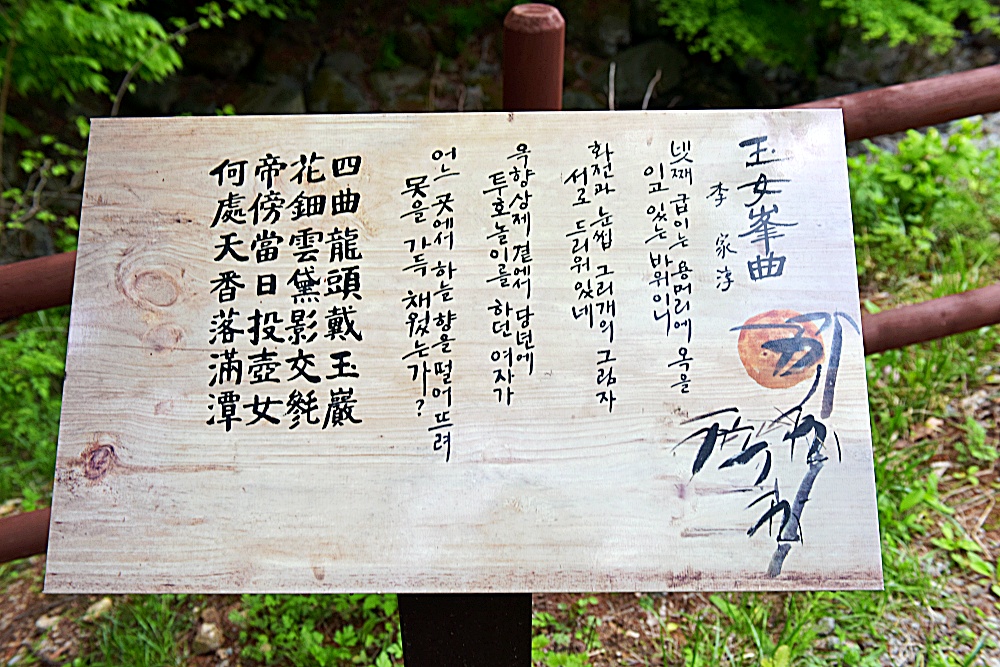 玉女峯曲
李家淳
넷째 굽이는 용머리에 옥을
이고 있는 바위이니
화전과 눈썹 그리개의 그림자
서로 드리워 있네
옥황상제 곁에서 당년에
투호놀이를 하던 여자가
어느 곳에서 하늘 향을 떨어뜨려
못을 가득 채웠는가?
四曲龍頭戴玉巖
花鈿雲黛影交毿
帝傍當日投壺女
何處天香落滿潭